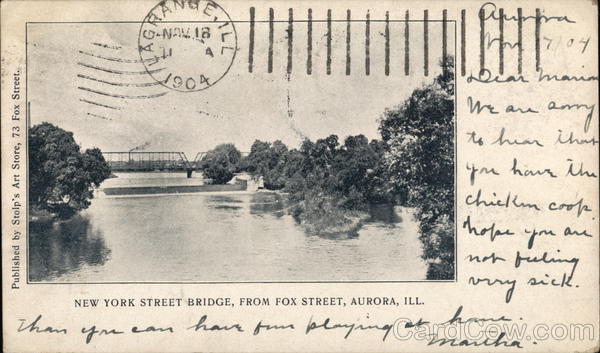 LAGRANGE, ILL.
NOV 18
11 A
1904
Published by Stolp's Art Store, 73 Fox Street.
Aurora
Nov 17/04
Dear Maria
We are sorry
to hear that
you have the
chicken coop.
hope you are
not feeling
very sick.
Than you can have fun playing at home.
Martha.
NEW YORK STREET BRIDGE, FROM FOX STREET, AURORA, ILL.
CardCow.com